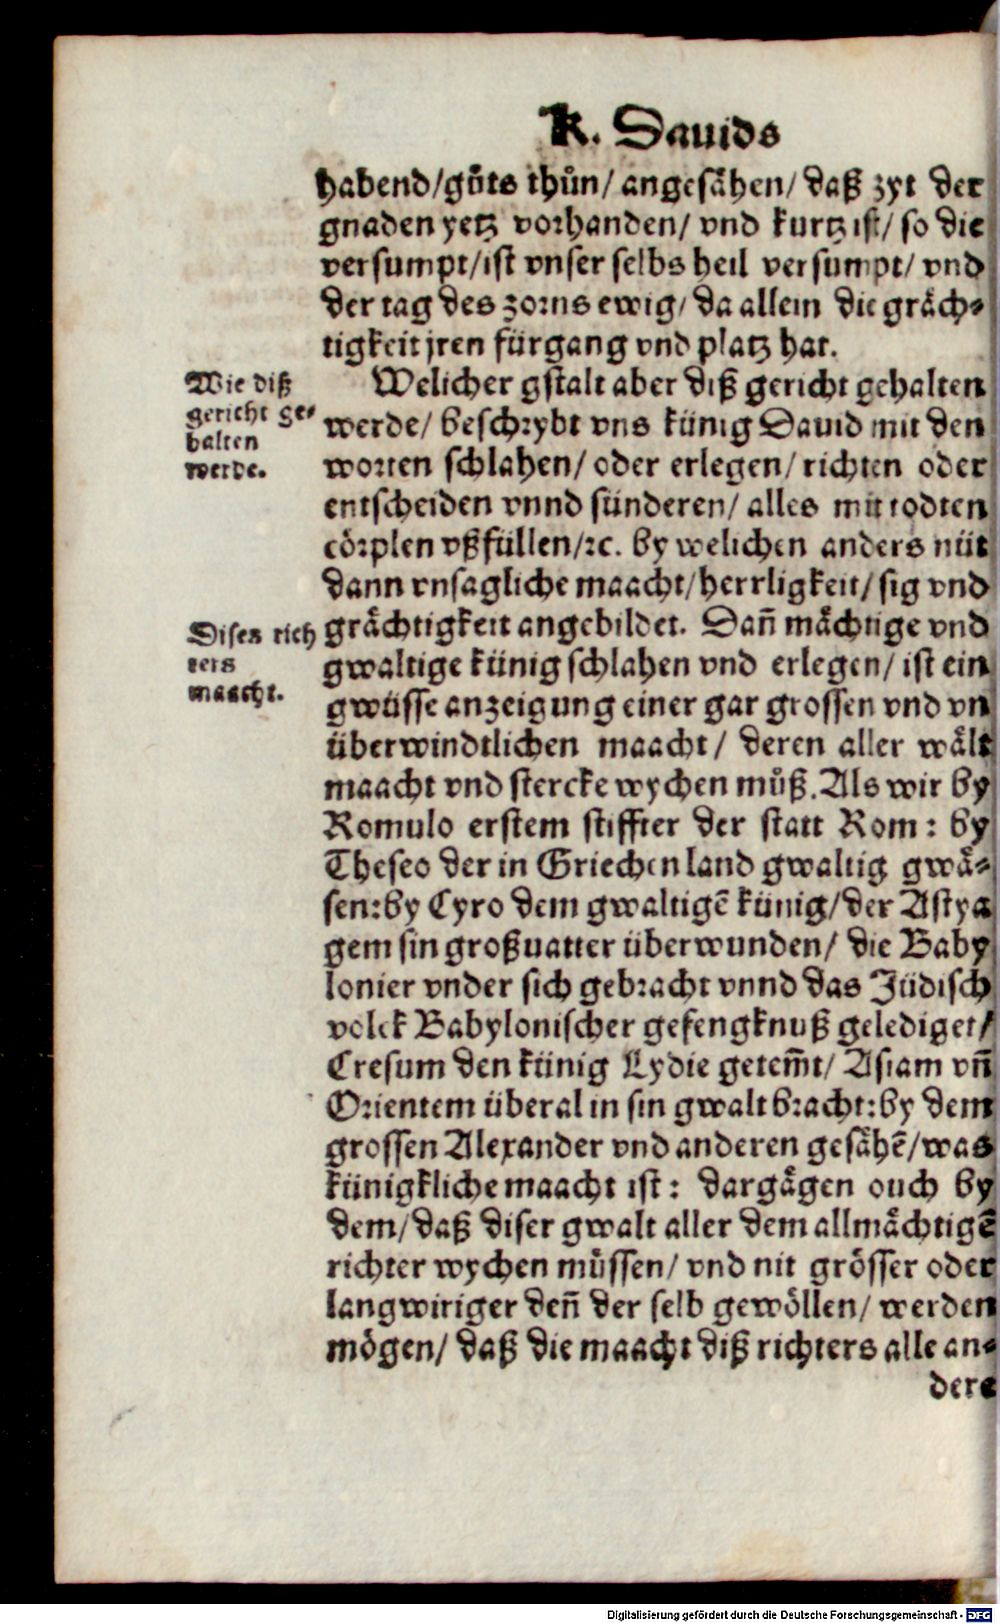 K. Dauids
habend/gůts thůn/ angesähen/ daß zyt der
gnaden yetz vorhanden/ vnd kurtz ist/ so die
versumpt/ist vnser selbs heil versumpt/ vnd
der tag des zorns ewig/ da allein die gräch⸗
tigkeit jren fürgang vnd platz hat.
Wie diß
gericht ge⸗
halten
werde.
Welicher gstalt aber diß gericht gehalten
werde/ beschrybt vns künig Dauid mit den
worten schlahen/ oder erlegen/ richten oder
entscheiden vnnd sünderen/ alles mit todten
cörplen vßfüllen/ꝛc. by welichen anders nüt
dann vnsagliche maacht/herrligkeit/ sig vnd
grächtigkeit angebildet. Dañ mächtige vnd
Dises rich
ters
maacht.
gwaltige künig schlahen vnd erlegen/ ist ein
gwüsse anzeigung einer gar grossen vnd vn
überwindtlichen maacht/ deren aller wält
maacht vnd stercke wychen můß. Als wir by
Romulo erstem stiffter der statt Rom: by
Theseo der in Griechen land gwaltig gwä⸗
sen: by Cyro dem gwaltigē künig/der Astya
gem sin großuatter überwunden/ die Baby
lonier vnder sich gebracht vnnd das Jüdisch
volck Babylonischer gefengknuß geledigēt/
Cresum den künig Lydie getem̄t/ Asiam vñ
Orientem überal in sin gwalt bracht: by dem
grossen Alexander vnd anderen gesähē/ was
künigkliche maacht ist: dargägen ouch by
dem/ daß diser gwalt aller dem allmächtigē
richter wychen müssen/ vnd nit grösser oder
langwiriger deñ der selb gewöllen/ werden
mögen/ daß die maacht diß richters alle an⸗
dere
Digitalisierung gefördert durch die Deutsche Forschungsgemeinschaft - DFG